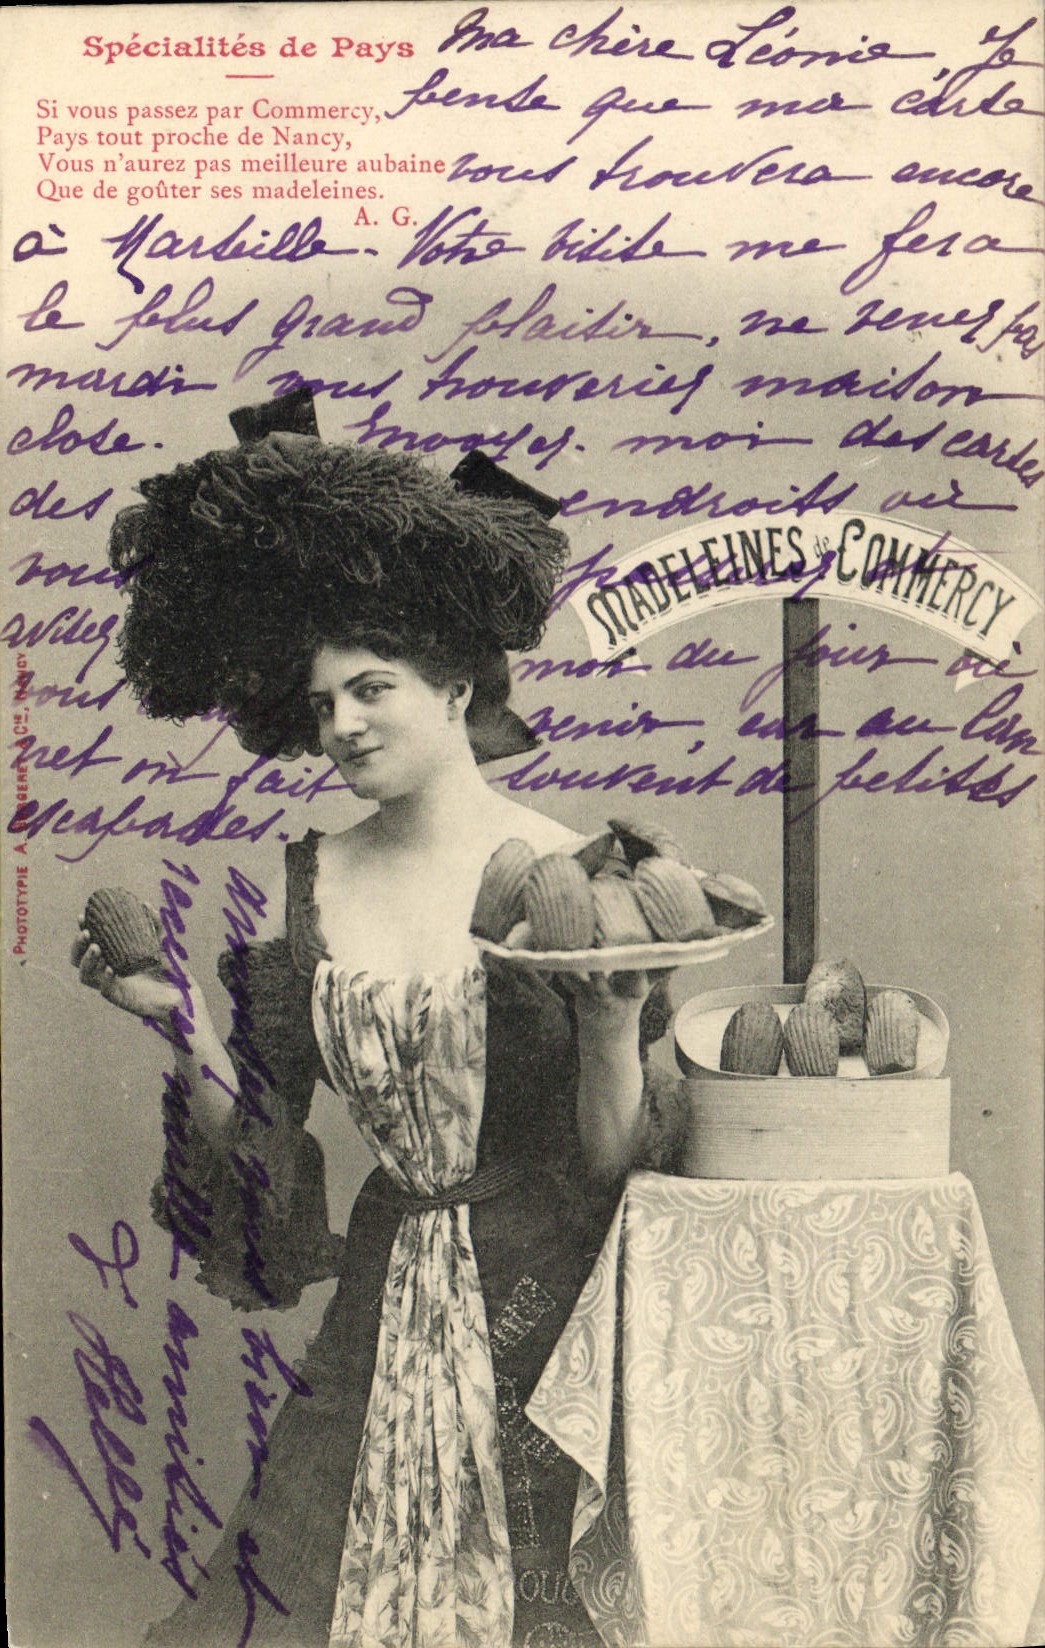 Spécialités de Pays
Si vous passez par Commercy,
Pays tout proche de Nancy,
Vous n'aurez pas meilleure aubaine
Que de goûter ses madeleines.
A. G.
Ma chère Léonie, Je
pense que ma carte
vous trouvera encore
à Marseille. Votre visite me fera
le plus grand plaisir, ne venez pas
mardi vous trouveriez maison
close. Envoyez-moi des cartes
des endroits où
vous passerez et
avisez moi du jour où
vous venir, car au Can
net on fait souvent de petites
escapades.
MADELEINES de COMMERCY
PHOTOTYPIE A. BERGERET & Cie, NANCY
Maurice et
recevez mille amitiés